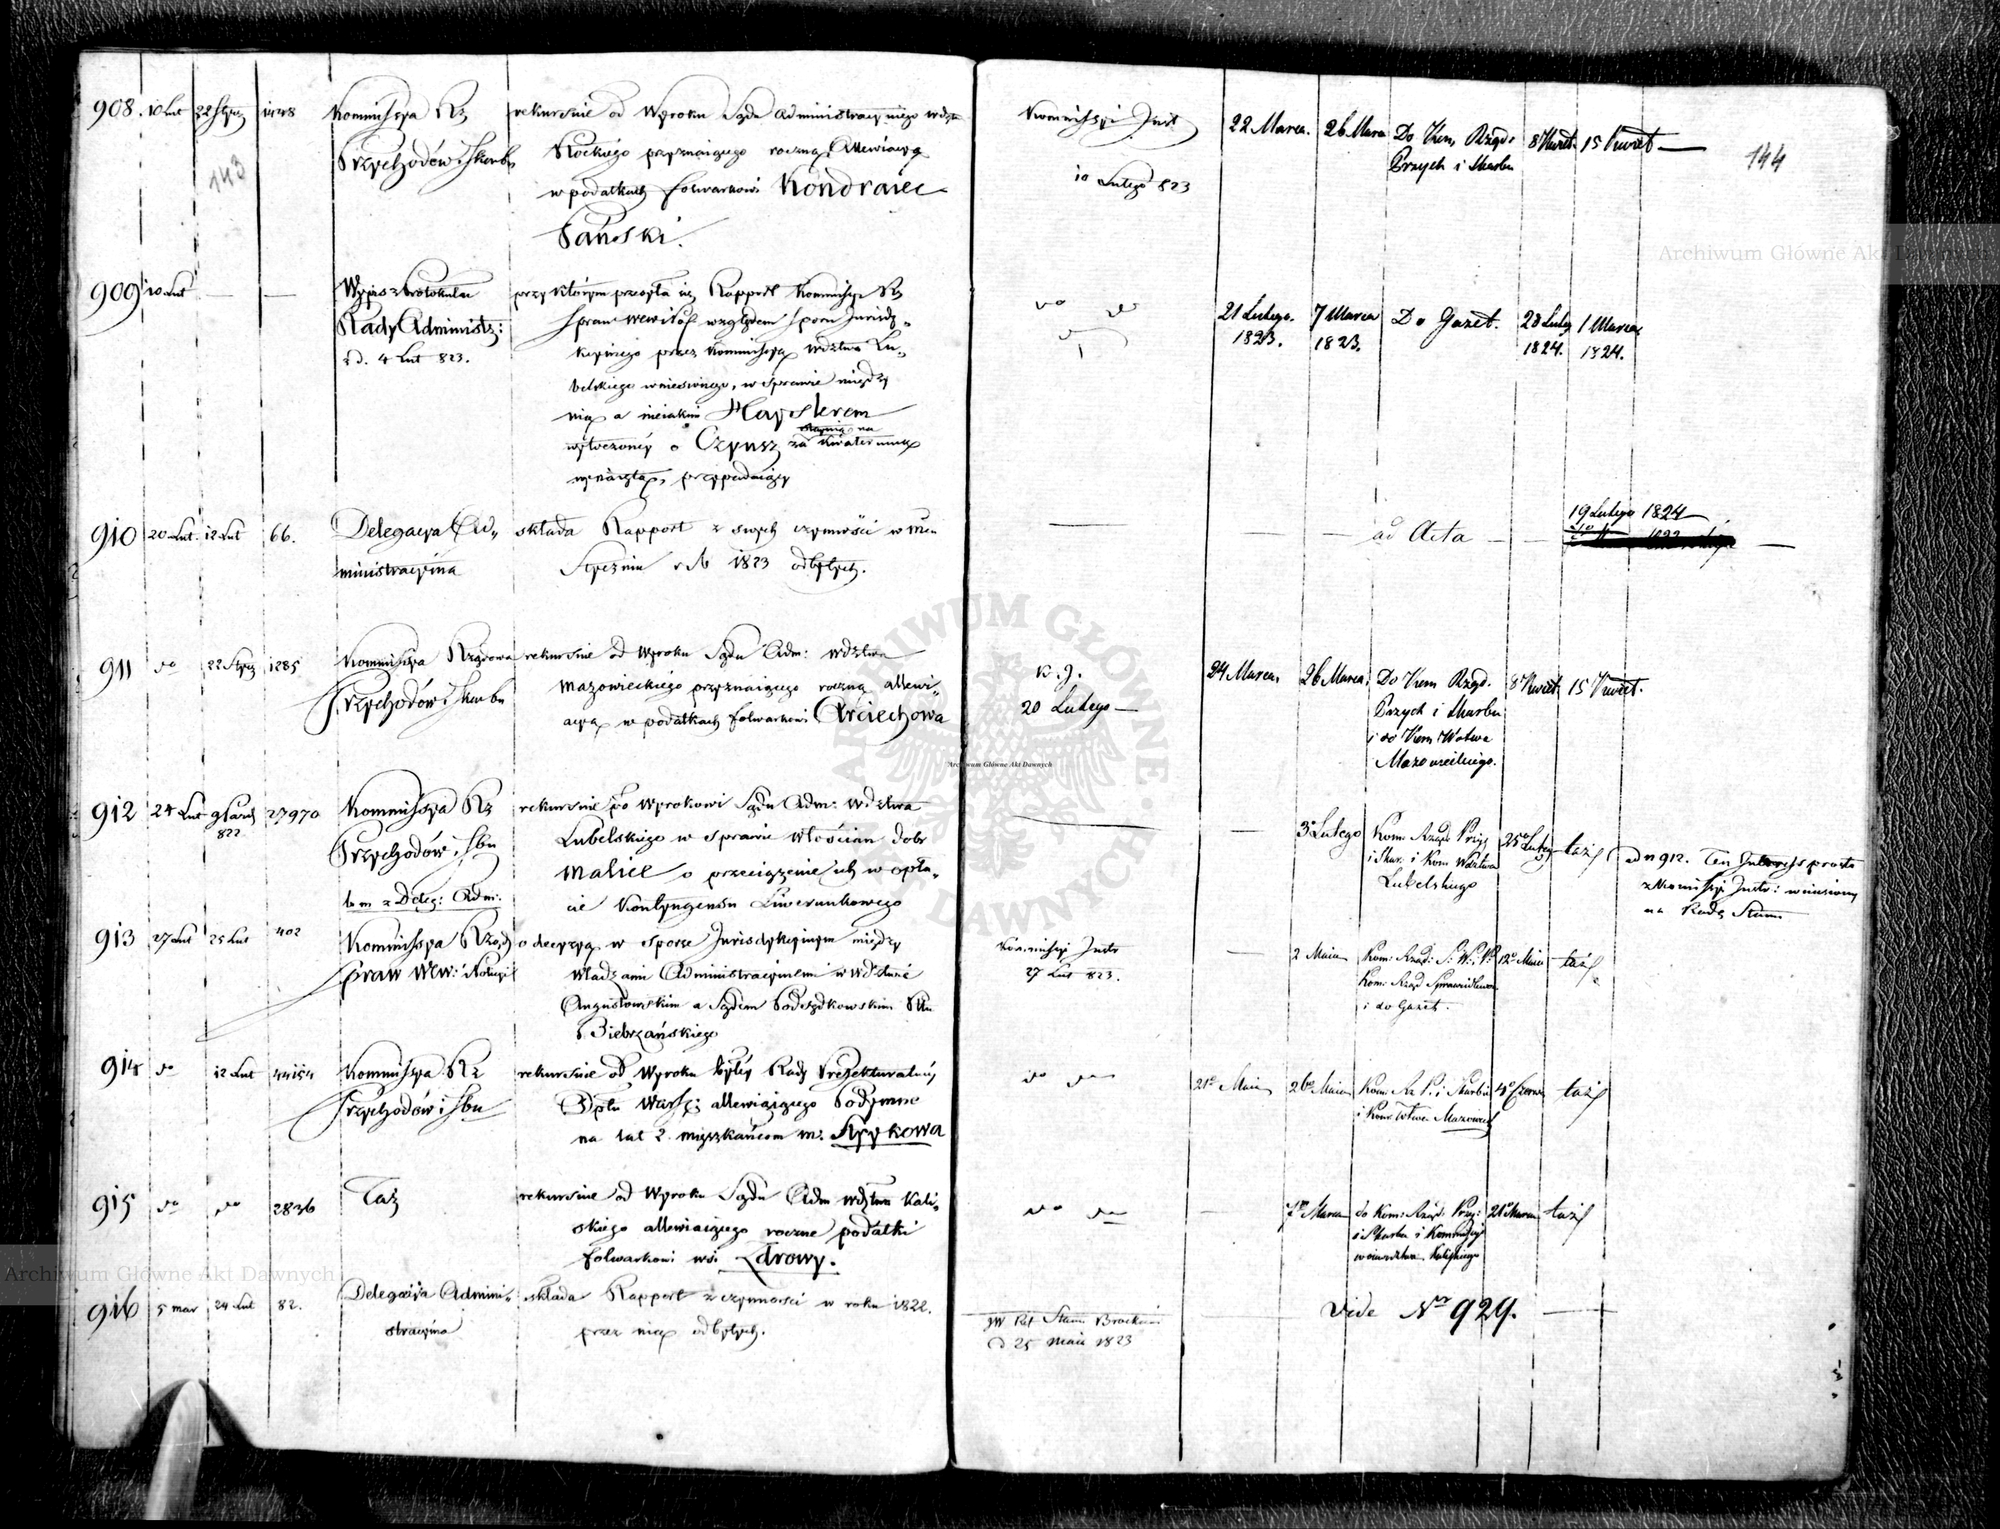 908. 10 Lut 22 Stycz 1448 Kommissya Rz rekursie od Wyroku Sądu Administracyinego wdztwa
Przychodów i Skarbu Płockiego przyznaiącego roczną allewiacyą
w podatkach folwarkowi Kondraiec
Pański.
Kommissyi Just 22 Marca. 26 Marca Do Kom. Rządo. 8 Kwiet. 15 Kwiet
10 Lutego 823 Przych i Skarbu
143
144
909 10 Lut Wypis z Protokułu przy którym przesyła się Rapport Kommissyi Rz
Rady Administr: Spraw Wewn i Pol względem Sporu Jurisdy-
z d. 4 Lut 823. kcyinego przez Kommissyą Wdztwa Lu-
belskiego wniesionego, w sprawie między
nią a nieiakim Haysterem
wytoczoney o Czynsz za Kwaterunek
przypadaiący
do do 21 Lutego. 7 Marca Do Gazet. 28 Lutego 1 Marca
1823. 1823. 1824. 1824.
910 20 Lut. 12 Lut 66. Delegacya Ad- składa Rapport z swych czynności w Mcu
ministracyina Styczniu r. b. 1823 odbytych.
ad Acta 19 Lutego 1824
911 do 22 Stycz 1285 Kommissya Rządowa rekursie od Wyroku Sądu Adm: wdztwa
Przychodów i Skarbu Mazowieckiego przyznaiącego roczną allewi-
acyą w podatkach folwarkowi Arciechowa
K. J. 24 Marca. 26 Marca. Do Kom Rząd. 8 Kwiet 15 Kwiet.
20 Lutego Przych i Skarbu
i do Kom Wdztwa
Mazowieckiego.
912 24 Lut 27970 Kommissya Rz rekursie po Wyrokowi Sądu Adm: Wdztwa
822 Przychodów i Sbu Lubelskiego w sprawie Włościan dobr
Malice o przeciążenie ich w opła-
tem z Deleg: Adm: cie Kontyngensu Liwerunkowego
3 Lutego Kom. Rząd. Przy 25 Lutego taż
i Skar. i Kom. Wdztwa
Lubelskiego
ad n 912. Ten Interess prosto
z Kommissyi Instr: wniesiony
na Radę Stanu
913 27 Lut 25 Lut 402 Kommissya Rządo o decyzyą w sporze Jurisdykcyinym między
Spraw Wew: i Policyi Władzami Administracyinemi w Wdztwie
Augustowskim a Sądem Podsędkowskim Ptu
Biebrzańskiego
Kommissyi Instr 2 Maia Kom: Rząd: S: W: i P. 12 Maia taż
27 Lut 823. Kom: Rząd Sprawiedliwoś
i do Gazet.
914 do 12 Lut 44154 Kommissya Rz rekursie od Wyroku byłéy Rady Prefekturalnéy
Przychodów i Sbu Dptu Warsz: allewiaiącego Podymne
na lat 2. mięszkańcom m: Ryykowa
do do 21 Maia 26 Maia Kom: Rz P. i Skarbu 4 Czerw taż
i Kom. Wdtwa Mazowiec
915 do do 2836 Taż rekursie od Wyroku Sądu Adm wdztwa Kali-
skiego allewiaiącego roczne podatki
folwarkowi wsi Zdrowy.
do do 7 Marca do Kom: Rząd: Przy: 21 Marca taż
i Skarbu i Kommissyi
woiewództwa Kaliskiego
916 5 mar 24 Lut 82. Delegacya Admini- składa Rapport z czynności w roku 1822.
stracyina przez nią odbytych.
JW Ref Stanu Brockiemu
d 25 Maia 1823
Vide Nro 929.
Archiwum Główne Akt Dawnych
Archiwum Główne Akt Dawnych
Archiwum Główne Akt Dawnych
ARCHIWUM GŁÓWNE AKT DAWNYCH